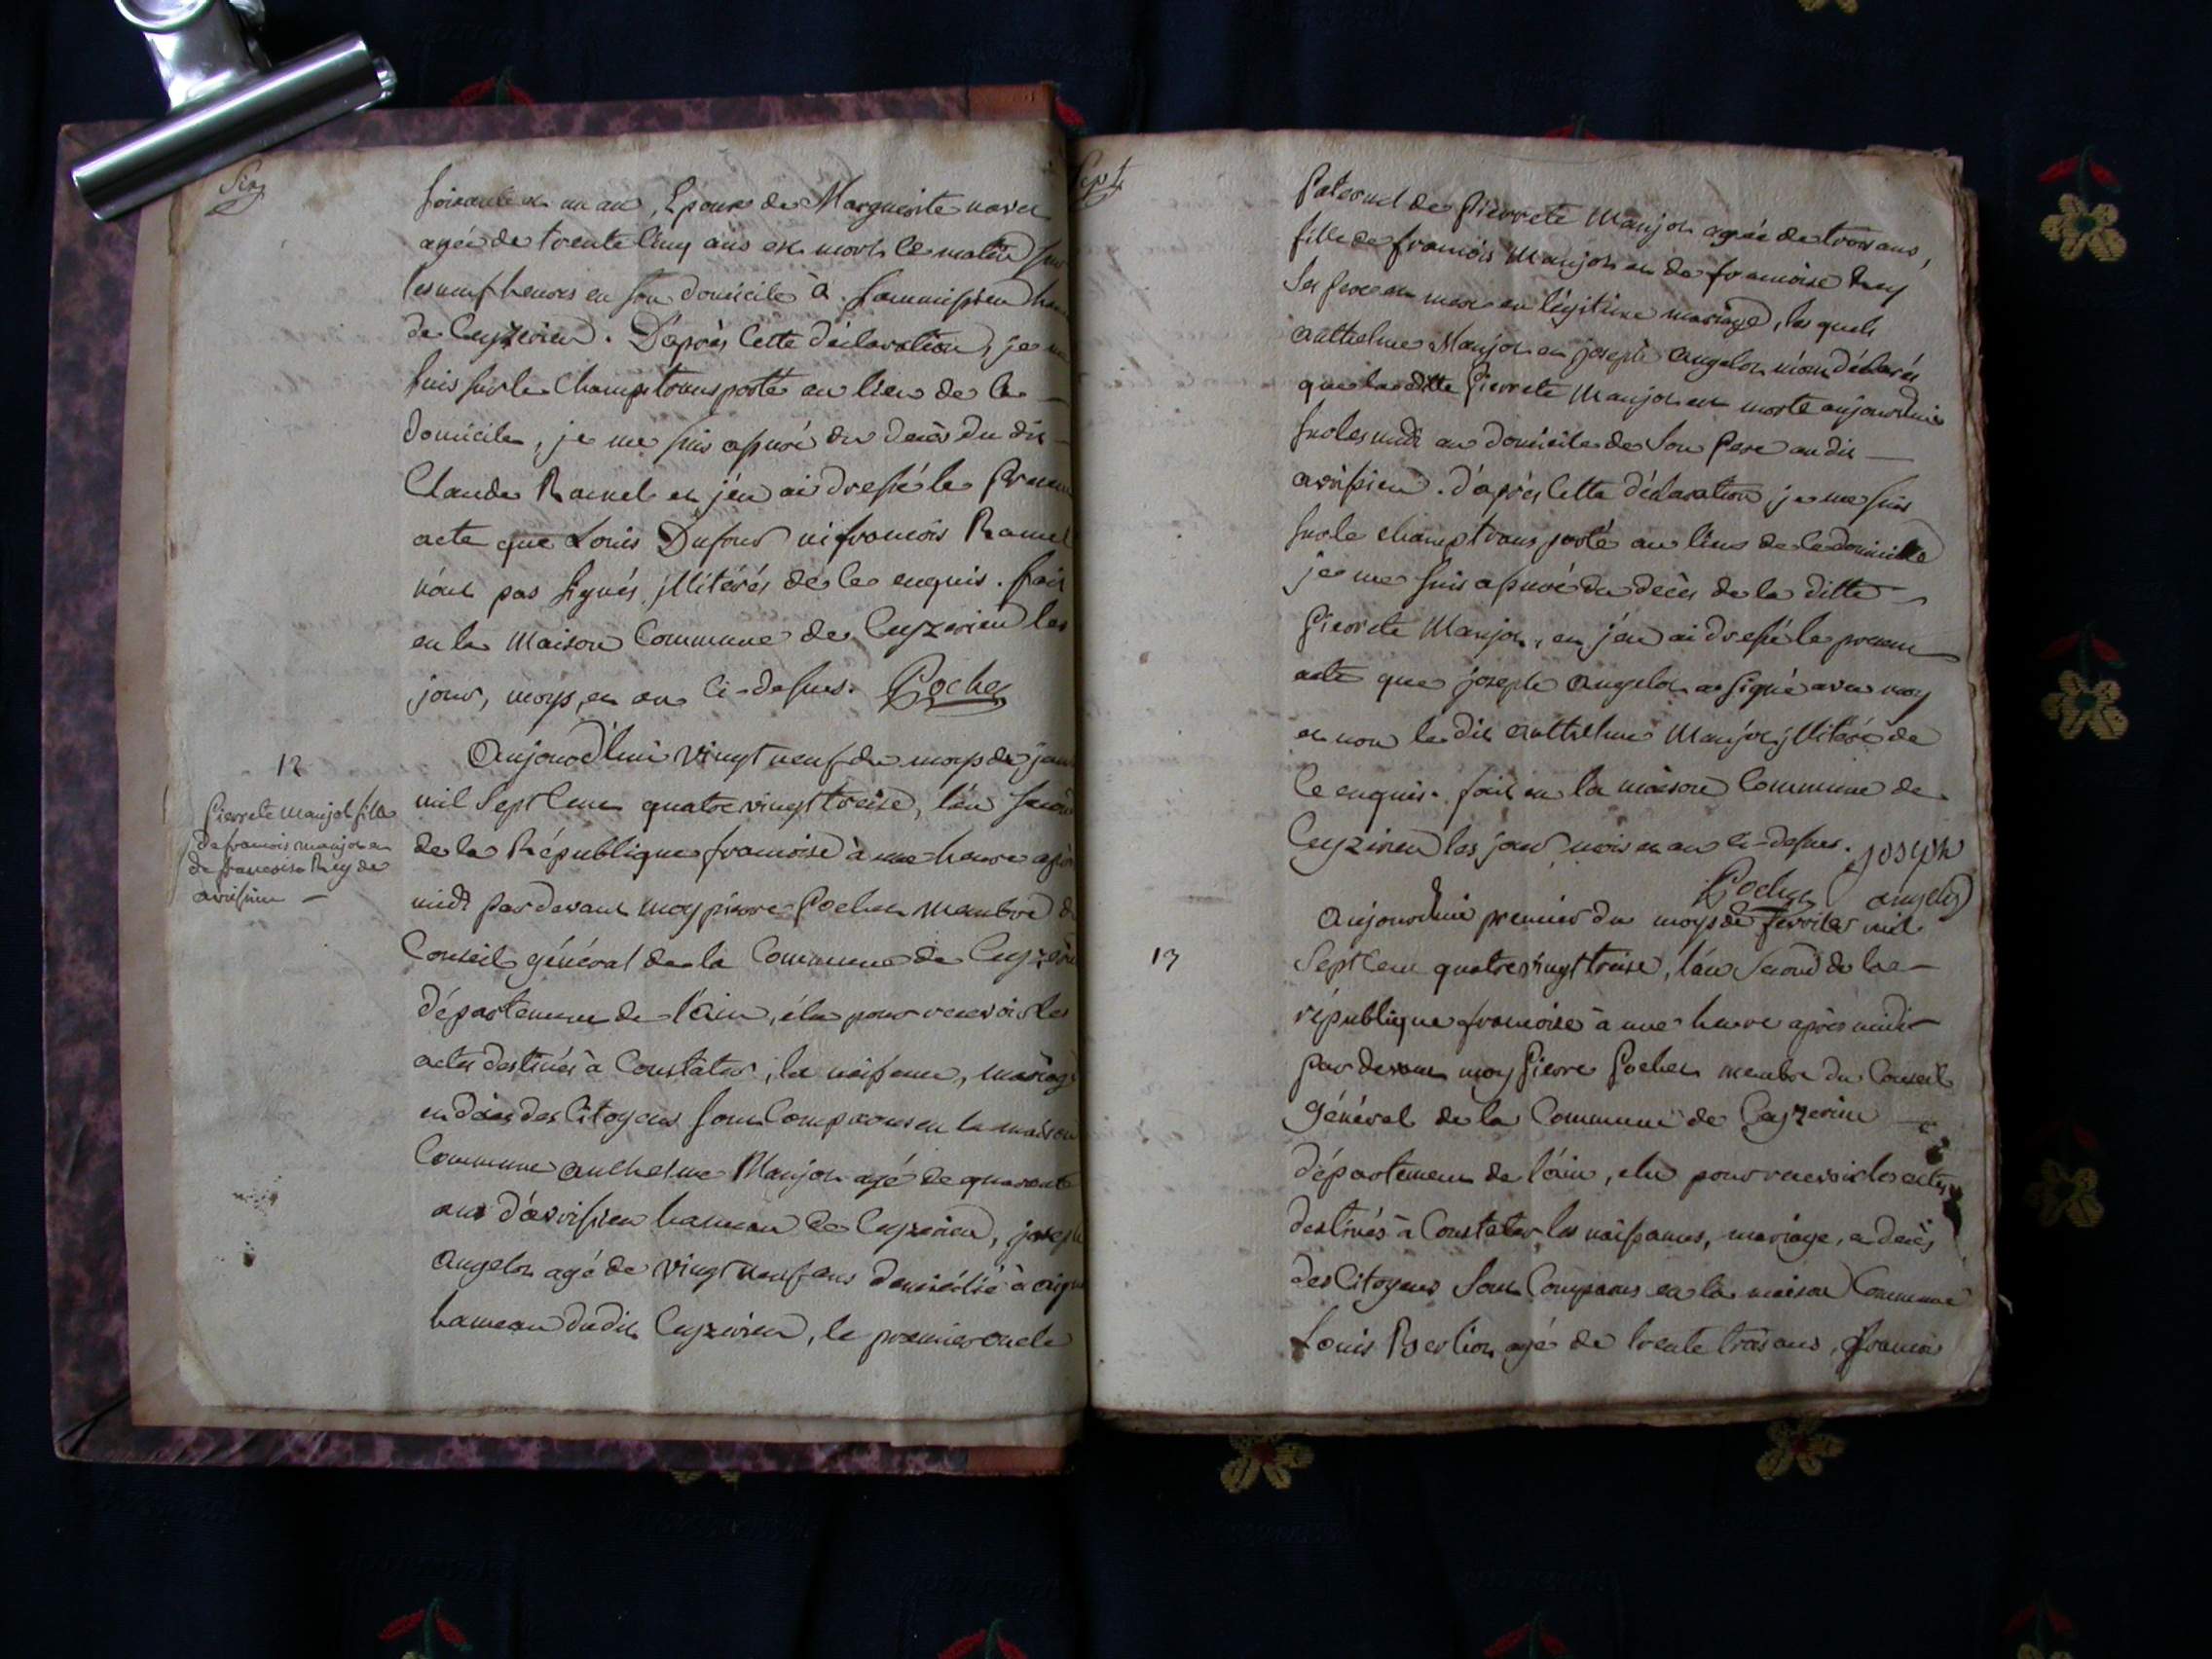 Six
soixante et un an, Epoux de Marguerite
agée de trente cinq ans est mort ce matin sur
les neuf heures en son domicile à hameau
de Ceyzerieu. D'après cette déclaration, je me
suis sur le champ transporté au lieu de ce
domicile, je me suis assuré du decès du dit
Claude Ramel et j'en ai dressé le present
acte que Louis Dufour ni francois Ramel
n'ont pas signés illitérés de ce enquis. fait
en la maison Commune de Ceyzerieu les
jour, moys, et an ci-dessus. Pochet
12
Pierrete Manjot fille
de francois manjot et
de francoise Rey de
avrissieu
Aujourd'huy vingt neuf du moys de janv
mil sept cent quatre vingt treise, l'an second
de la République francoise à une heure après
midi par devant moy pierre Pochet membre du
Conseil général de la Commune de Ceyzerieu
département de l'ain, élu pour recevoir les
actes destinés à Constater, la naissance, mariage
et décès des Citoyens sont Comparus en la maison
Commune anthelme Manjot agé de quarante
ans d'avrissieu hameau de Ceyzerieu, joseph
angelot agé de vingt neuf ans domicilié à aign
hameau dudit Ceyzerieu, le premier oncle
Sept
paternel de Pierrete Manjot agée de trois ans,
fille de francois Manjot et de francoise Rey
ses pere et mere en légitime mariage, les quels
anthelme Manjot et joseph angelot m'ont déclarés
que la ditte Pierrete Manjot est morte aujourdhuis
sur les midi au domicile de son Pere au dit
avrissieu. d'après cette déclaration je me suis
sur le champ transporté au lieu de ce domicile
je me suis assuré du decès de la ditte
Pierrete Manjot, et j'en ai dressé le present
acte que joseph angelot a signé avec moy
et non le dit anthelme Manjot illitéré de
ce enquis. fait en la maison Commune de
Ceyzerieu les jour mois et an ci-dessus. joseph
Pochet angelot
13
Aujourdhuis premier du moys de fevrier mil
sept cent quatre vingt treise, l'an second de la
république francoise à une heure après midi
par devant moy Pierre Pochet membre du Conseil
général de la Commune de Ceyzerieu
département de l'ain, elu pour recevoir les actes
destinés à Constater les naissances, mariage, et decès
des Citoyens sont Comparus en la maison Commune
Louis Berlion agé de trente trois ans, francois